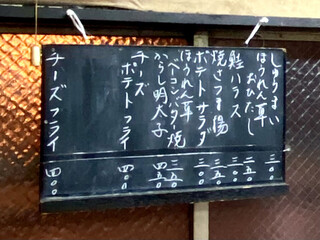 しゅうまい 三〇〇
ほうれん草おひたし 二五〇
鮭ハラス 三〇〇
焼さつま揚 三五〇
ポテトサラダ 三〇〇
ほうれん草ベーコンバタ焼 三五〇
からし明太子 四五〇
チーズポテトフライ 四〇〇
チーズフライ 四〇〇